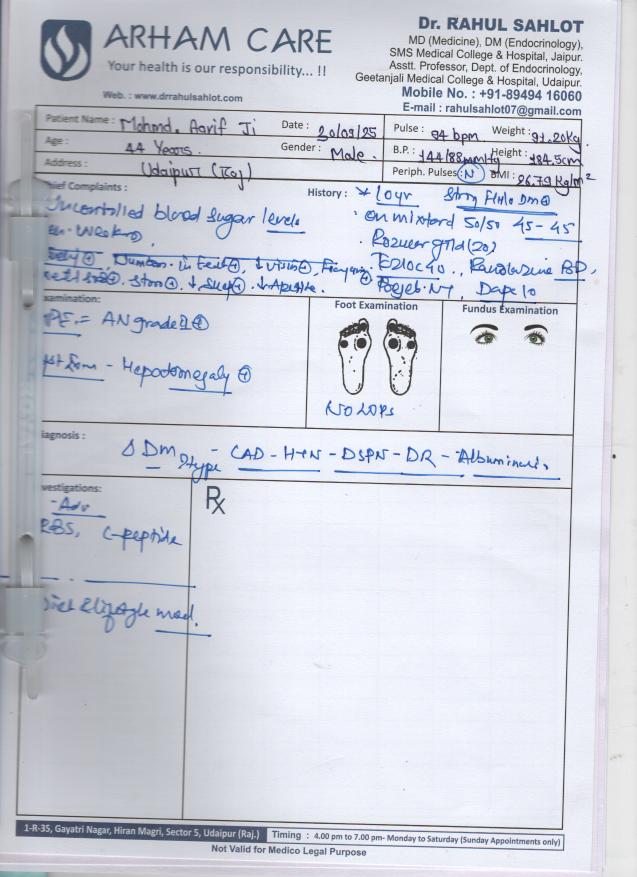 ARHAM CARE
Your health is our responsibility... !!
Web. : www.drrahulsahlot.com
Dr. RAHUL SAHLOT
MD (Medicine), DM (Endocrinology),
SMS Medical College & Hospital, Jaipur.
Asstt. Professor, Dept. of Endocrinology,
Geetanjali Medical College & Hospital, Udaipur.
Mobile No. : +91-89494 16060
E-mail : rahulsahlot07@gmail.com
Patient Name : Mohmd. Aarif Ji Date : 30/09/25 Pulse : 94 bpm Weight : 91.20Kg
Age : 44 Years. Gender : Male. B.P. : 144/88mmHg Height : 184.5cm
Address : Udaipur (Raj) Periph. Pulses : N BMI : 26.79 Kg/m²
hief Complaints : History : * 10yr Strong F/H/o DM +
Uncontrolled blood sugar levels · on mixtard 50/50 45 - 45
· Rozucor gold (20)
Numbn. in feet +, ↓ vision +, Ezloc 40, Ranolazine BD,
↓ Sleep +. ↓ Apetite. Dapa 10
xamination: Foot Examination Fundus Examination
PE = AN grade +
- Hepatomegaly +
NO LOPS
iagnosis :
Δ DM type - CAD - HTN - DSPN - DR - Albuminuria
vestigations: Rx
- Adv
RBS, C-peptide
Diet & lifestyle mod.
1-R-35, Gayatri Nagar, Hiran Magri, Sector 5, Udaipur (Raj.) Timing : 4.00 pm to 7.00 pm- Monday to Saturday (Sunday Appointments only)
Not Valid for Medico Legal Purpose